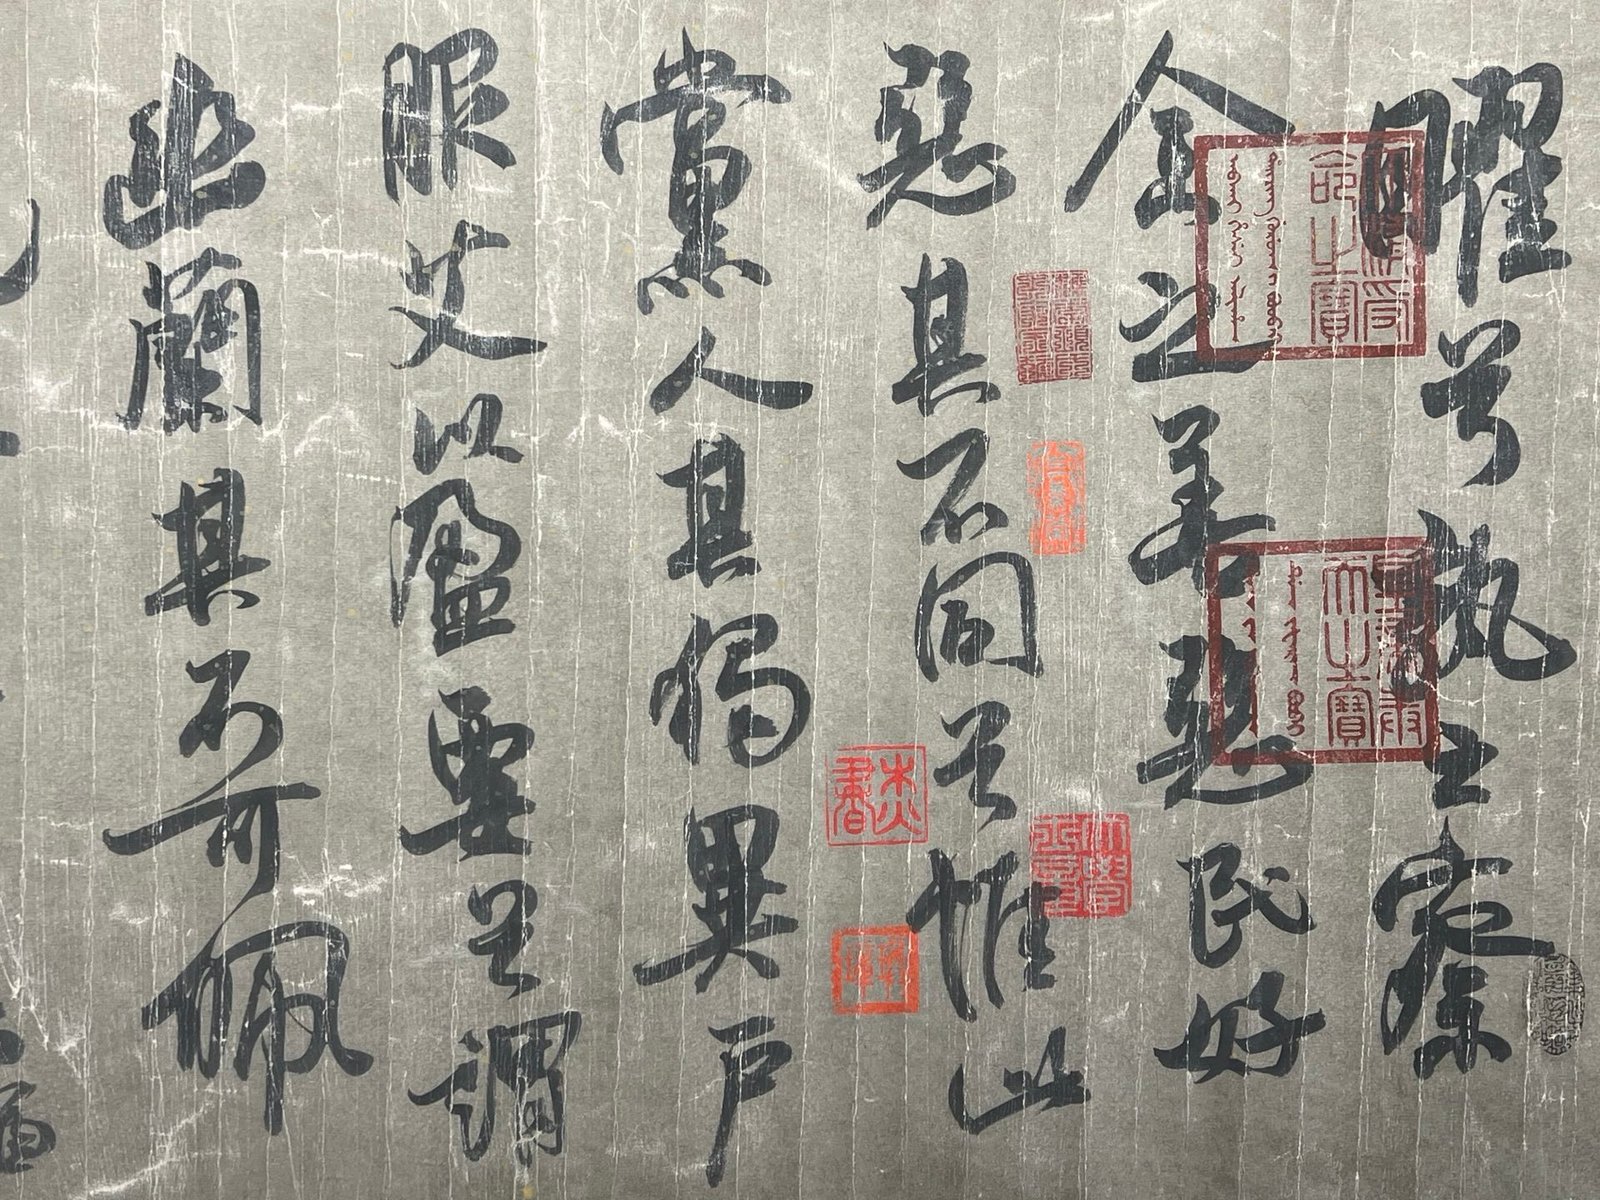 曜兮孰云察
余之善惡民好
惡其不同兮惟此
黨人其獨異戶
服艾以盈要兮謂
幽蘭其不可佩